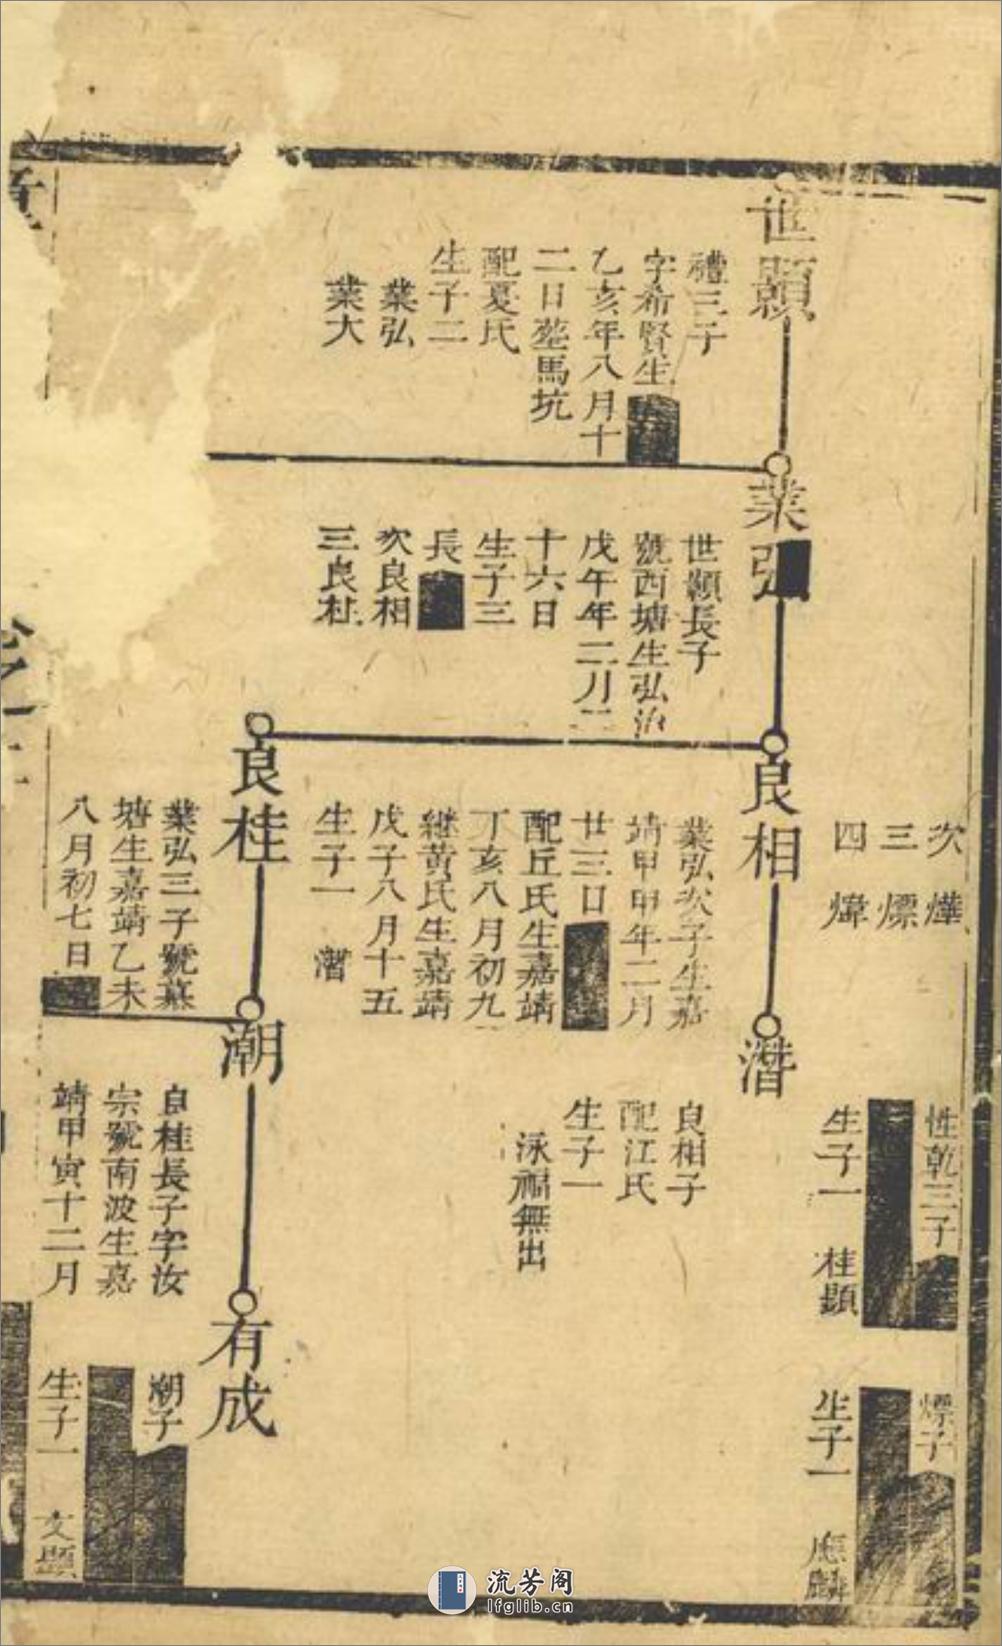 次燁
三熛
四煒
性乾三子
生子一　桂顯
熛子
生子一　應麟
世顯
禮三子
字希賢生
乙亥年八月十
二日塟馬坑
配夏氏
生子二
業弘
業大
業弘
世顯長子
號西塘生弘治
戊午年二月二
十六日
生子三
長
次良相
三良桂
良相
業弘次子生嘉
靖甲申年二月
廿三日
配丘氏生嘉靖
丁亥八月初九
継黄氏生嘉靖
戊子八月十五
生子一　潛
潛
良相子
配江氏
生子一
泳福無出
良桂
業弘三子號慕
塘生嘉靖乙未
八月初七日
潮
良桂長子字汝
宗號南波生嘉
靖甲寅十二月
有成
潮子
生子一　文顯
流芳阁
lfglib.cn